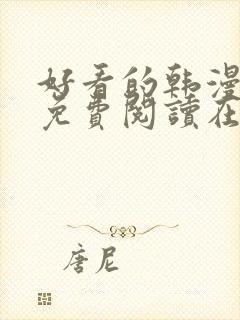 好看的韩漫
免費閱讀在
唐尼